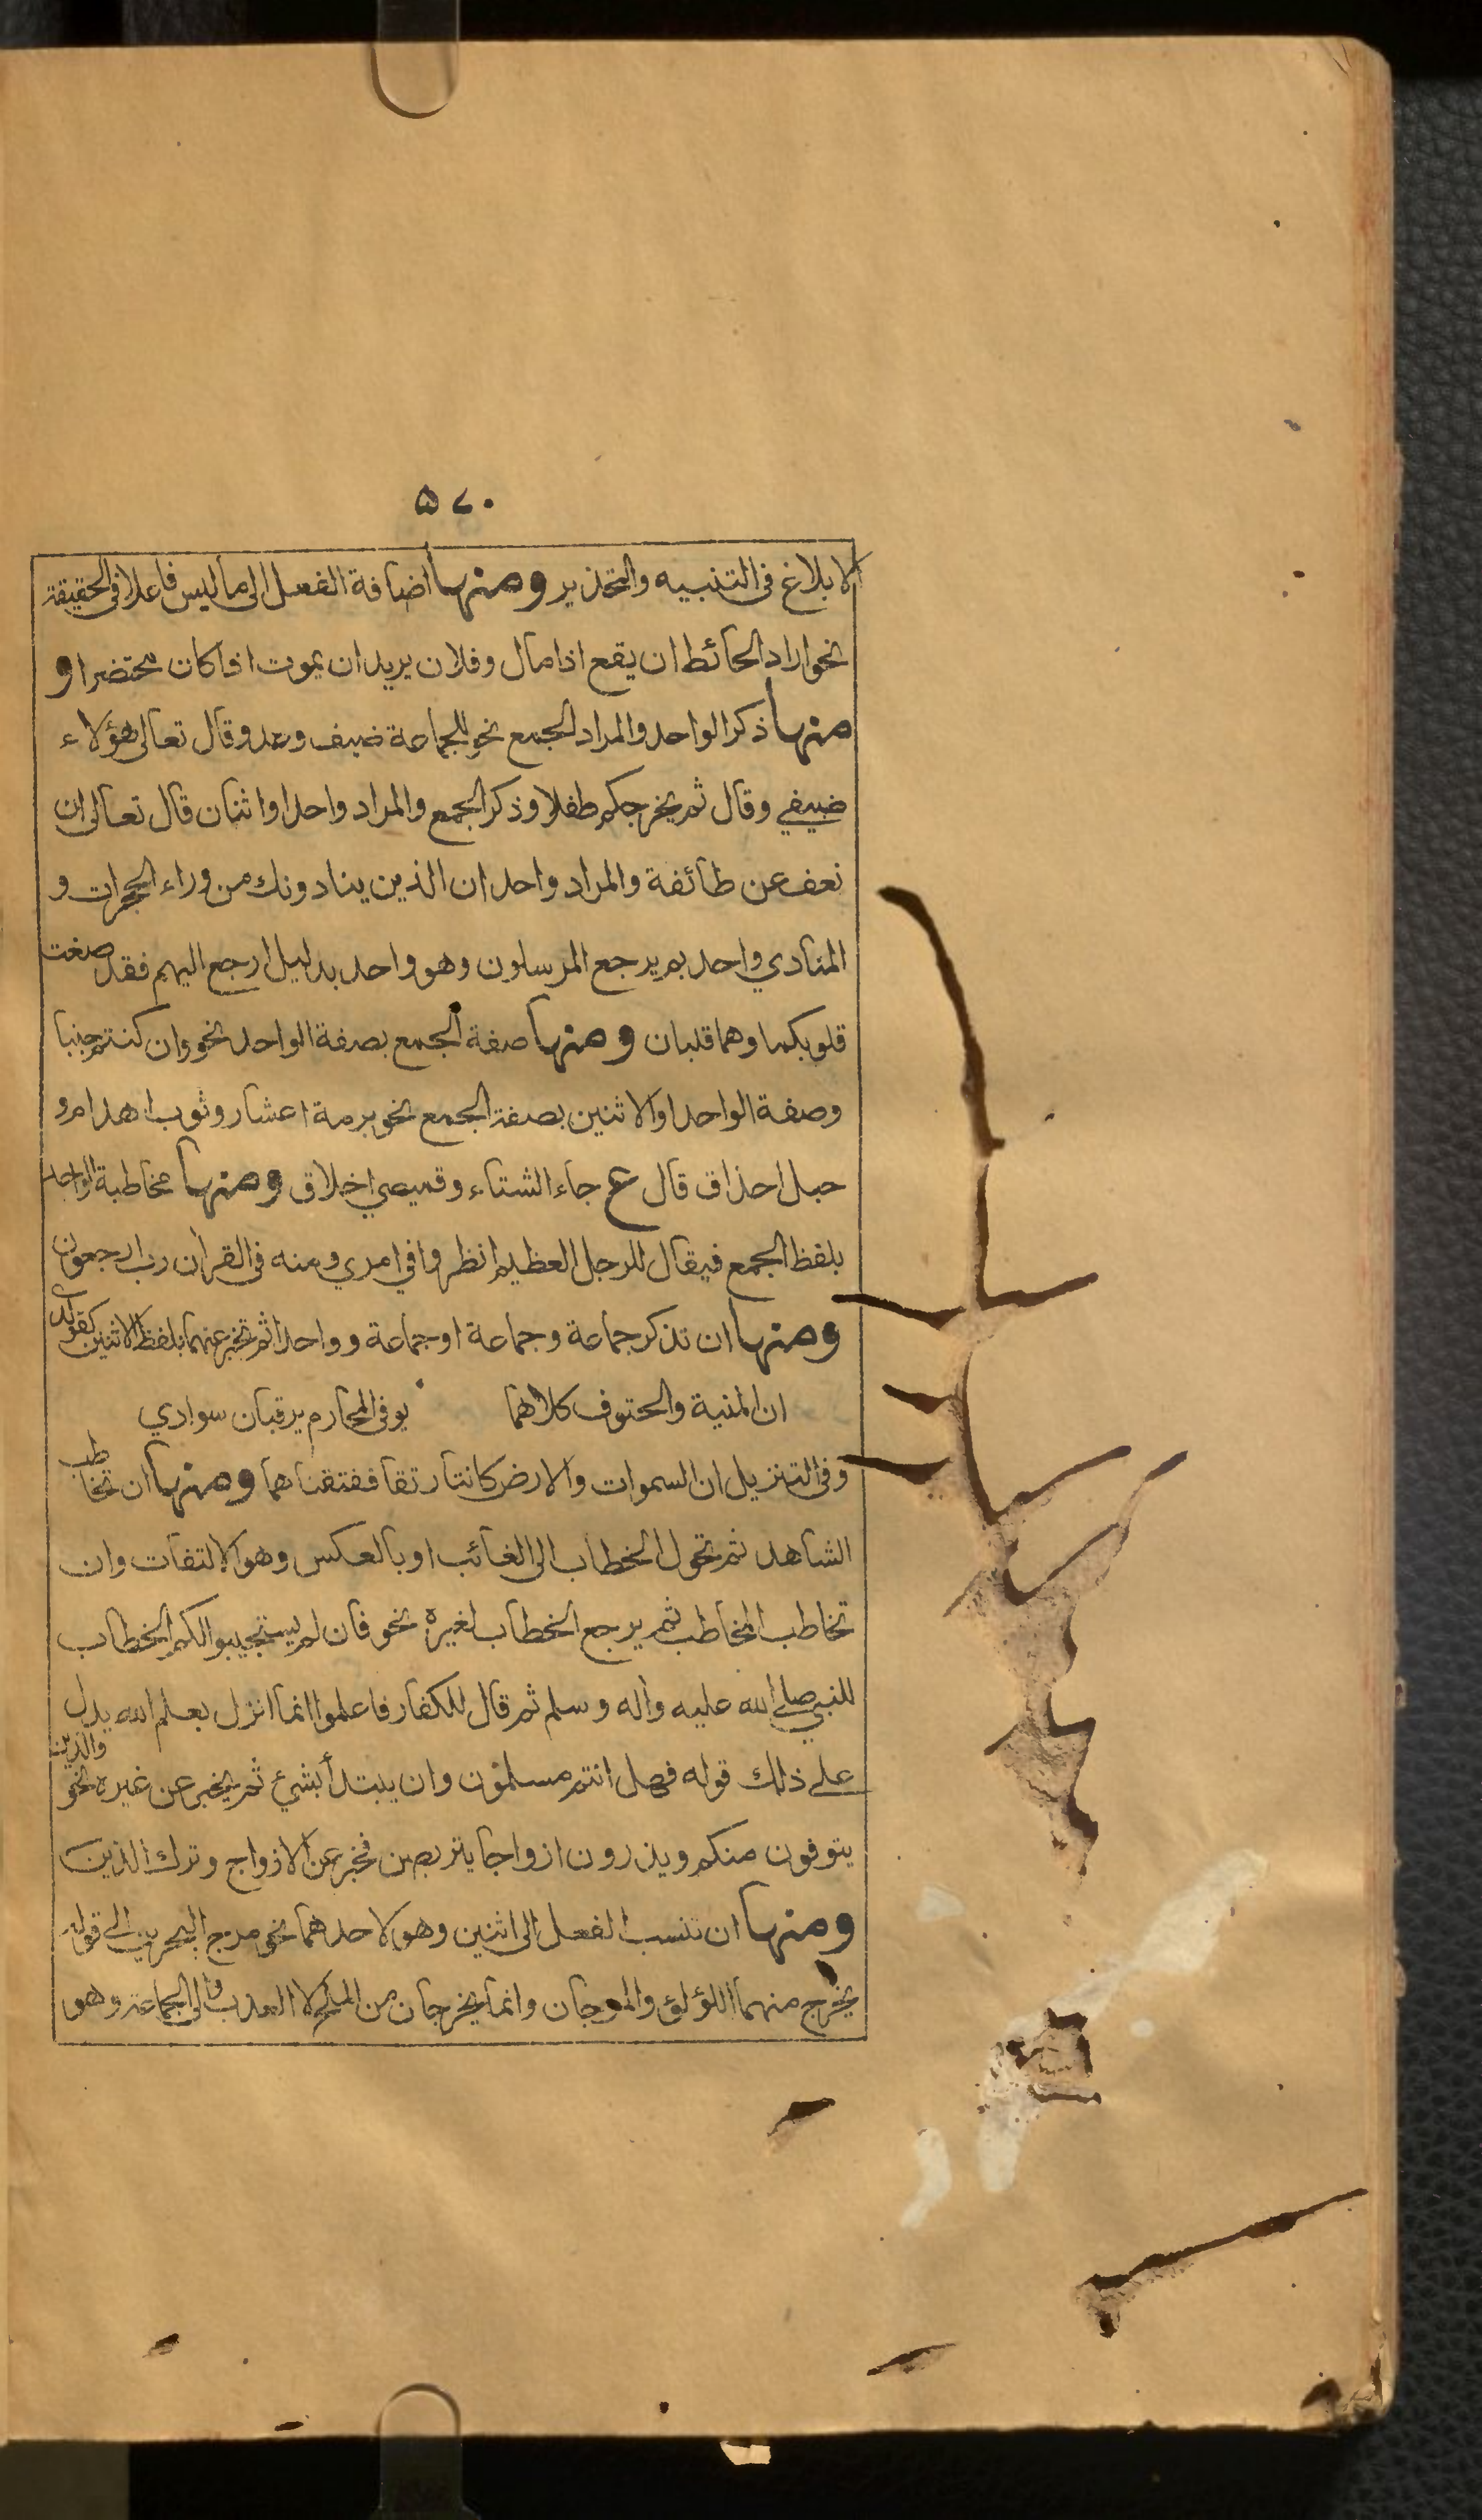 ۵۷۰
الابلاغ فى التنبيه والتحذير ومنها اضافة الفعل الى ما ليس فاعلا فى الحقيقة
نحو اراد الحائط ان يقع اذا مال وفلان يريد ان يموت اذا كان محتضرا و
منها ذكر الواحد والمراد الجمع نحو للجماعة ضيف وعدو قال تعالى هؤلاء
ضيفي وقال ثم يخرجكم طفلا وذكر الجمع والمراد واحد او اثنان قال تعالى ان
نعف عن طائفة والمراد واحد ان الذين ينادونك من وراء الحجرات و
المنادي واحد بم يرجع المرسلون وهو واحد بدليل ارجع اليهم فقد صغت
قلوبكما وهما قلبان ومنها صفة الجمع بصفة الواحد نحو وان كنتم جنبا
وصفة الواحد او الاثنين بصفة الجمع نحو برمة اعشار وثوب اهدام و
حبل احذاق قال ع جاء الشتاء وقميصي اخلاق ومنها مخاطبة الواحد
بلفظ الجمع فيقال للرجل العظيم انظروا في امري ومنه فى القران رب ارجعون
ومنها ان تذكر جماعة وجماعة او جماعة و واحدا ثم تخبر عنهما بلفظ الاثنين كقوله
ان المنية والحتوف كلاهما يوفى المحارم يرقبان سوادي
وفى التنزيل ان السموات والارض كانتا رتقا ففتقناهما ومنها ان تخاطب
الشاهد ثم تحول الخطاب الى الغائب او بالعكس وهو الالتفات وان
تخاطب المخاطب ثم يرجع الخطاب لغيره نحو فان لم يستجيبوا لكم الخطاب
للنبي صلى الله عليه وآله وسلم ثم قال للكفار فاعلموا انما انزل بعلم الله يدل
على ذلك قوله فهل انتم مسلمون وان يبتدأ بشئ ثم يخبر عن غيره نحو والذين
يتوفون منكم ويذرون ازواجا يتربصن فخبر عن الازواج وترك الذين
ومنها ان تنسب الفعل الى اثنين وهو لاحدهما نحو مرج البحرين الى قوله
يخرج منهما اللؤلؤ والمرجان وانما يخرجان من الملح لا العذب والى الجماعة وهو